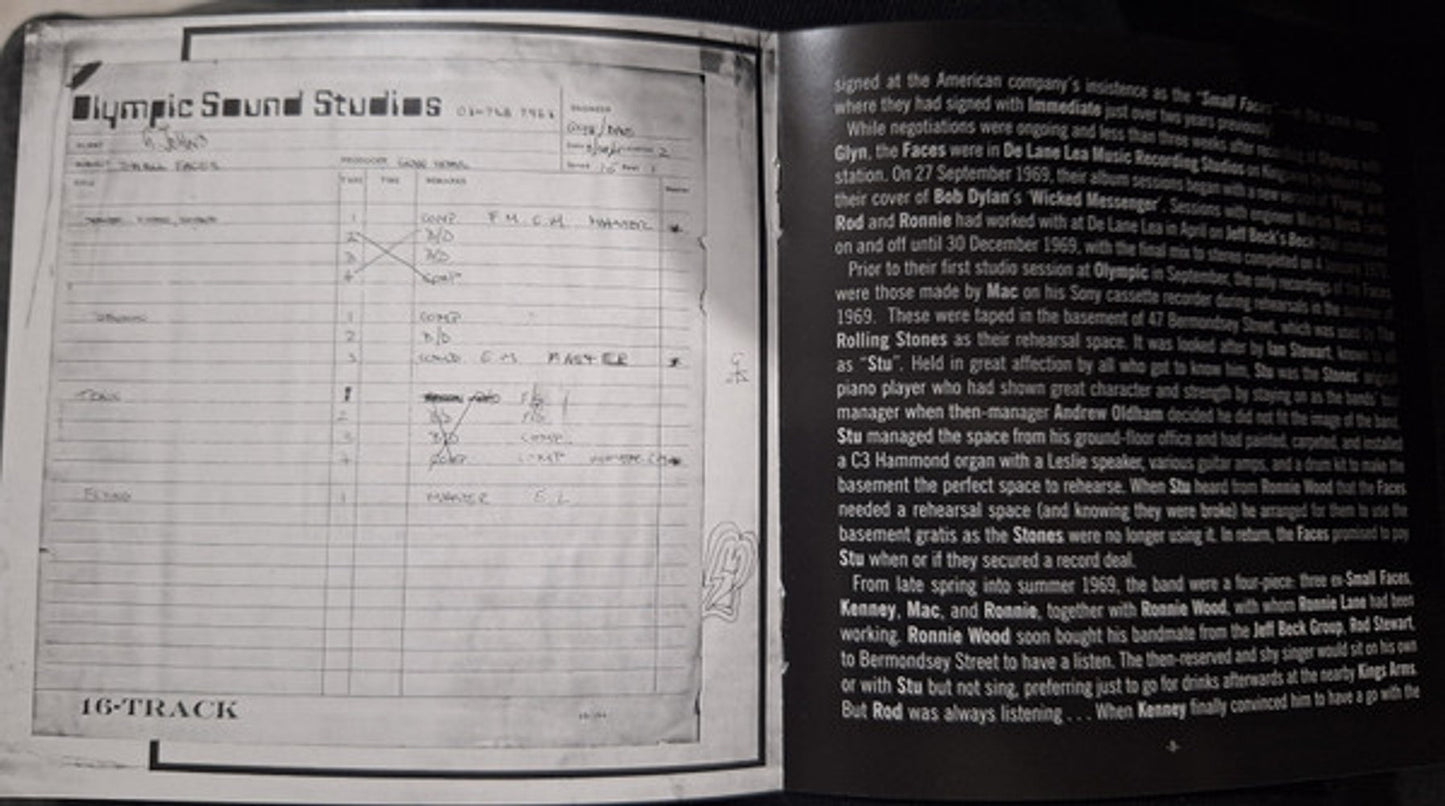 Olympic Sound Studios
CLIENT G JOHNS
ENGINEER
SMALL FACES
PRODUCER
TITLE
TIME
REMARKS
1 COMP. MASTER
2 B/D
3 B/D
4 COMP
1 COMP
2 B/D
3 MASTER
B/D
B/D COMP.
COMP COMP
FLYING 1 MASTER
16-TRACK
signed at the American company's insistence as the "Small Faces"
where they had signed with Immediate just over two years previously.
While negotiations were ongoing and less than three weeks after recording at Olympic with
Glyn, the Faces were in De Lane Lea Music Recording Studios on
station. On 27 September 1969, their album sessions began with a new version of 'Flying' and
their cover of Bob Dylan's 'Wicked Messenger'. Sessions with engineer
Rod and Ronnie had worked with at De Lane Lea in April on Jeff Beck's Beck-Ola continued
on and off until 30 December 1969, with the final mix to stereo completed on
Prior to their first studio session at Olympic in September, the only recordings of the Faces
were those made by Mac on his Sony cassette recorder during rehearsals in the summer of
1969. These were taped in the basement of 47 Bermondsey Street, which was used by The
Rolling Stones as their rehearsal space. It was looked after by Ian Stewart, known to all
as "Stu". Held in great affection by all who got to know him, Stu was the Stones' original
piano player who had shown great character and strength by staying on as the bands' tour
manager when then-manager Andrew Oldham decided he did not fit the image of the band.
Stu managed the space from his ground-floor office and had painted, carpeted, and installed
a C3 Hammond organ with a Leslie speaker, various guitar amps, and a drum kit to make the
basement the perfect space to rehearse. When Stu heard from Ronnie Wood that the Faces
needed a rehearsal space (and knowing they were broke) he arranged for them to use the
basement gratis as the Stones were no longer using it. In return, the Faces promised to pay
Stu when or if they secured a record deal.
From late spring into summer 1969, the band were a four-piece: three ex-Small Faces,
Kenney, Mac, and Ronnie, together with Ronnie Wood, with whom Ronnie Lane had been
working. Ronnie Wood soon bought his bandmate from the Jeff Beck Group, Rod Stewart,
to Bermondsey Street to have a listen. The then-reserved and shy singer would sit on his own
or with Stu but not sing, preferring just to go for drinks afterwards at the nearby Kings Arms.
But Rod was always listening . . . When Kenney finally convinced him to have a go with the